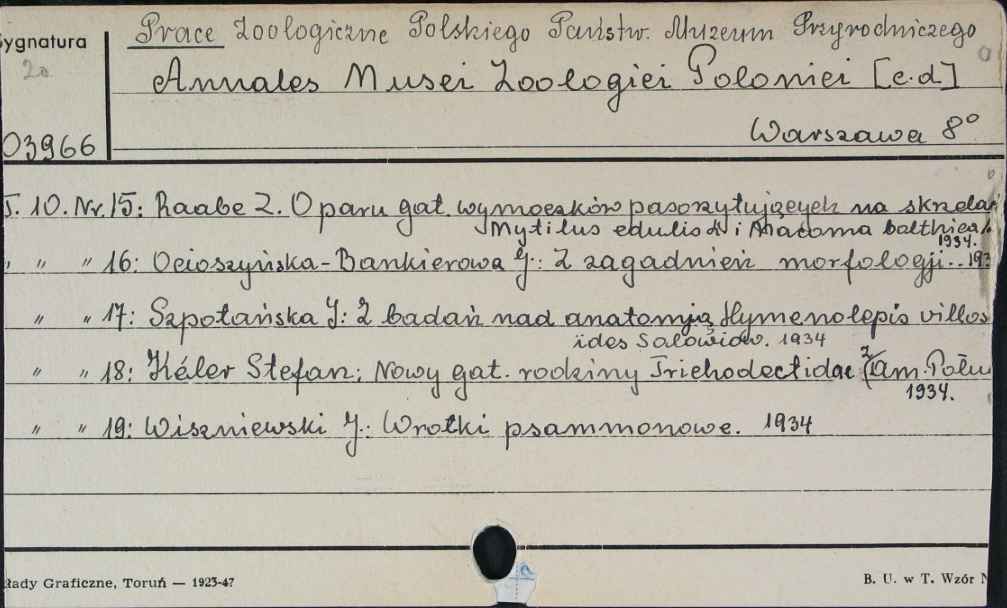 Prace Zoologiczne Polskiego Państw. Muzeum Przyrodniczego
ygnatura
20
Annales Musei Zoologiei Poloniei [c.d]
03966
Warszawa 8°
T. 10. Nr. 15: Raabe Z. O paru gat. wymoczków pasorzytujących na skrzela
Mytilus edulis i Macoma balthica
1934.
" " " 16: Ocioszyńska-Bankierowa J.: Z zagadnień morfologji.. 193
" " 17: Szpotańska J: Z badań nad anatomją Hymenolepis villos
ides Solowiow. 1934
" " 18: Kéler Stefan: Nowy gat. rodziny Trichodectidae (z Am. Połu
1934.
" " 19: Wiszniewski J.: Wrotki psammonowe. 1934
łady Graficzne, Toruń — 1923-47
B. U. w T. Wzór N